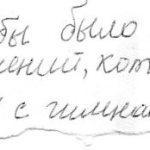 бы было
ений, кот
с гимна